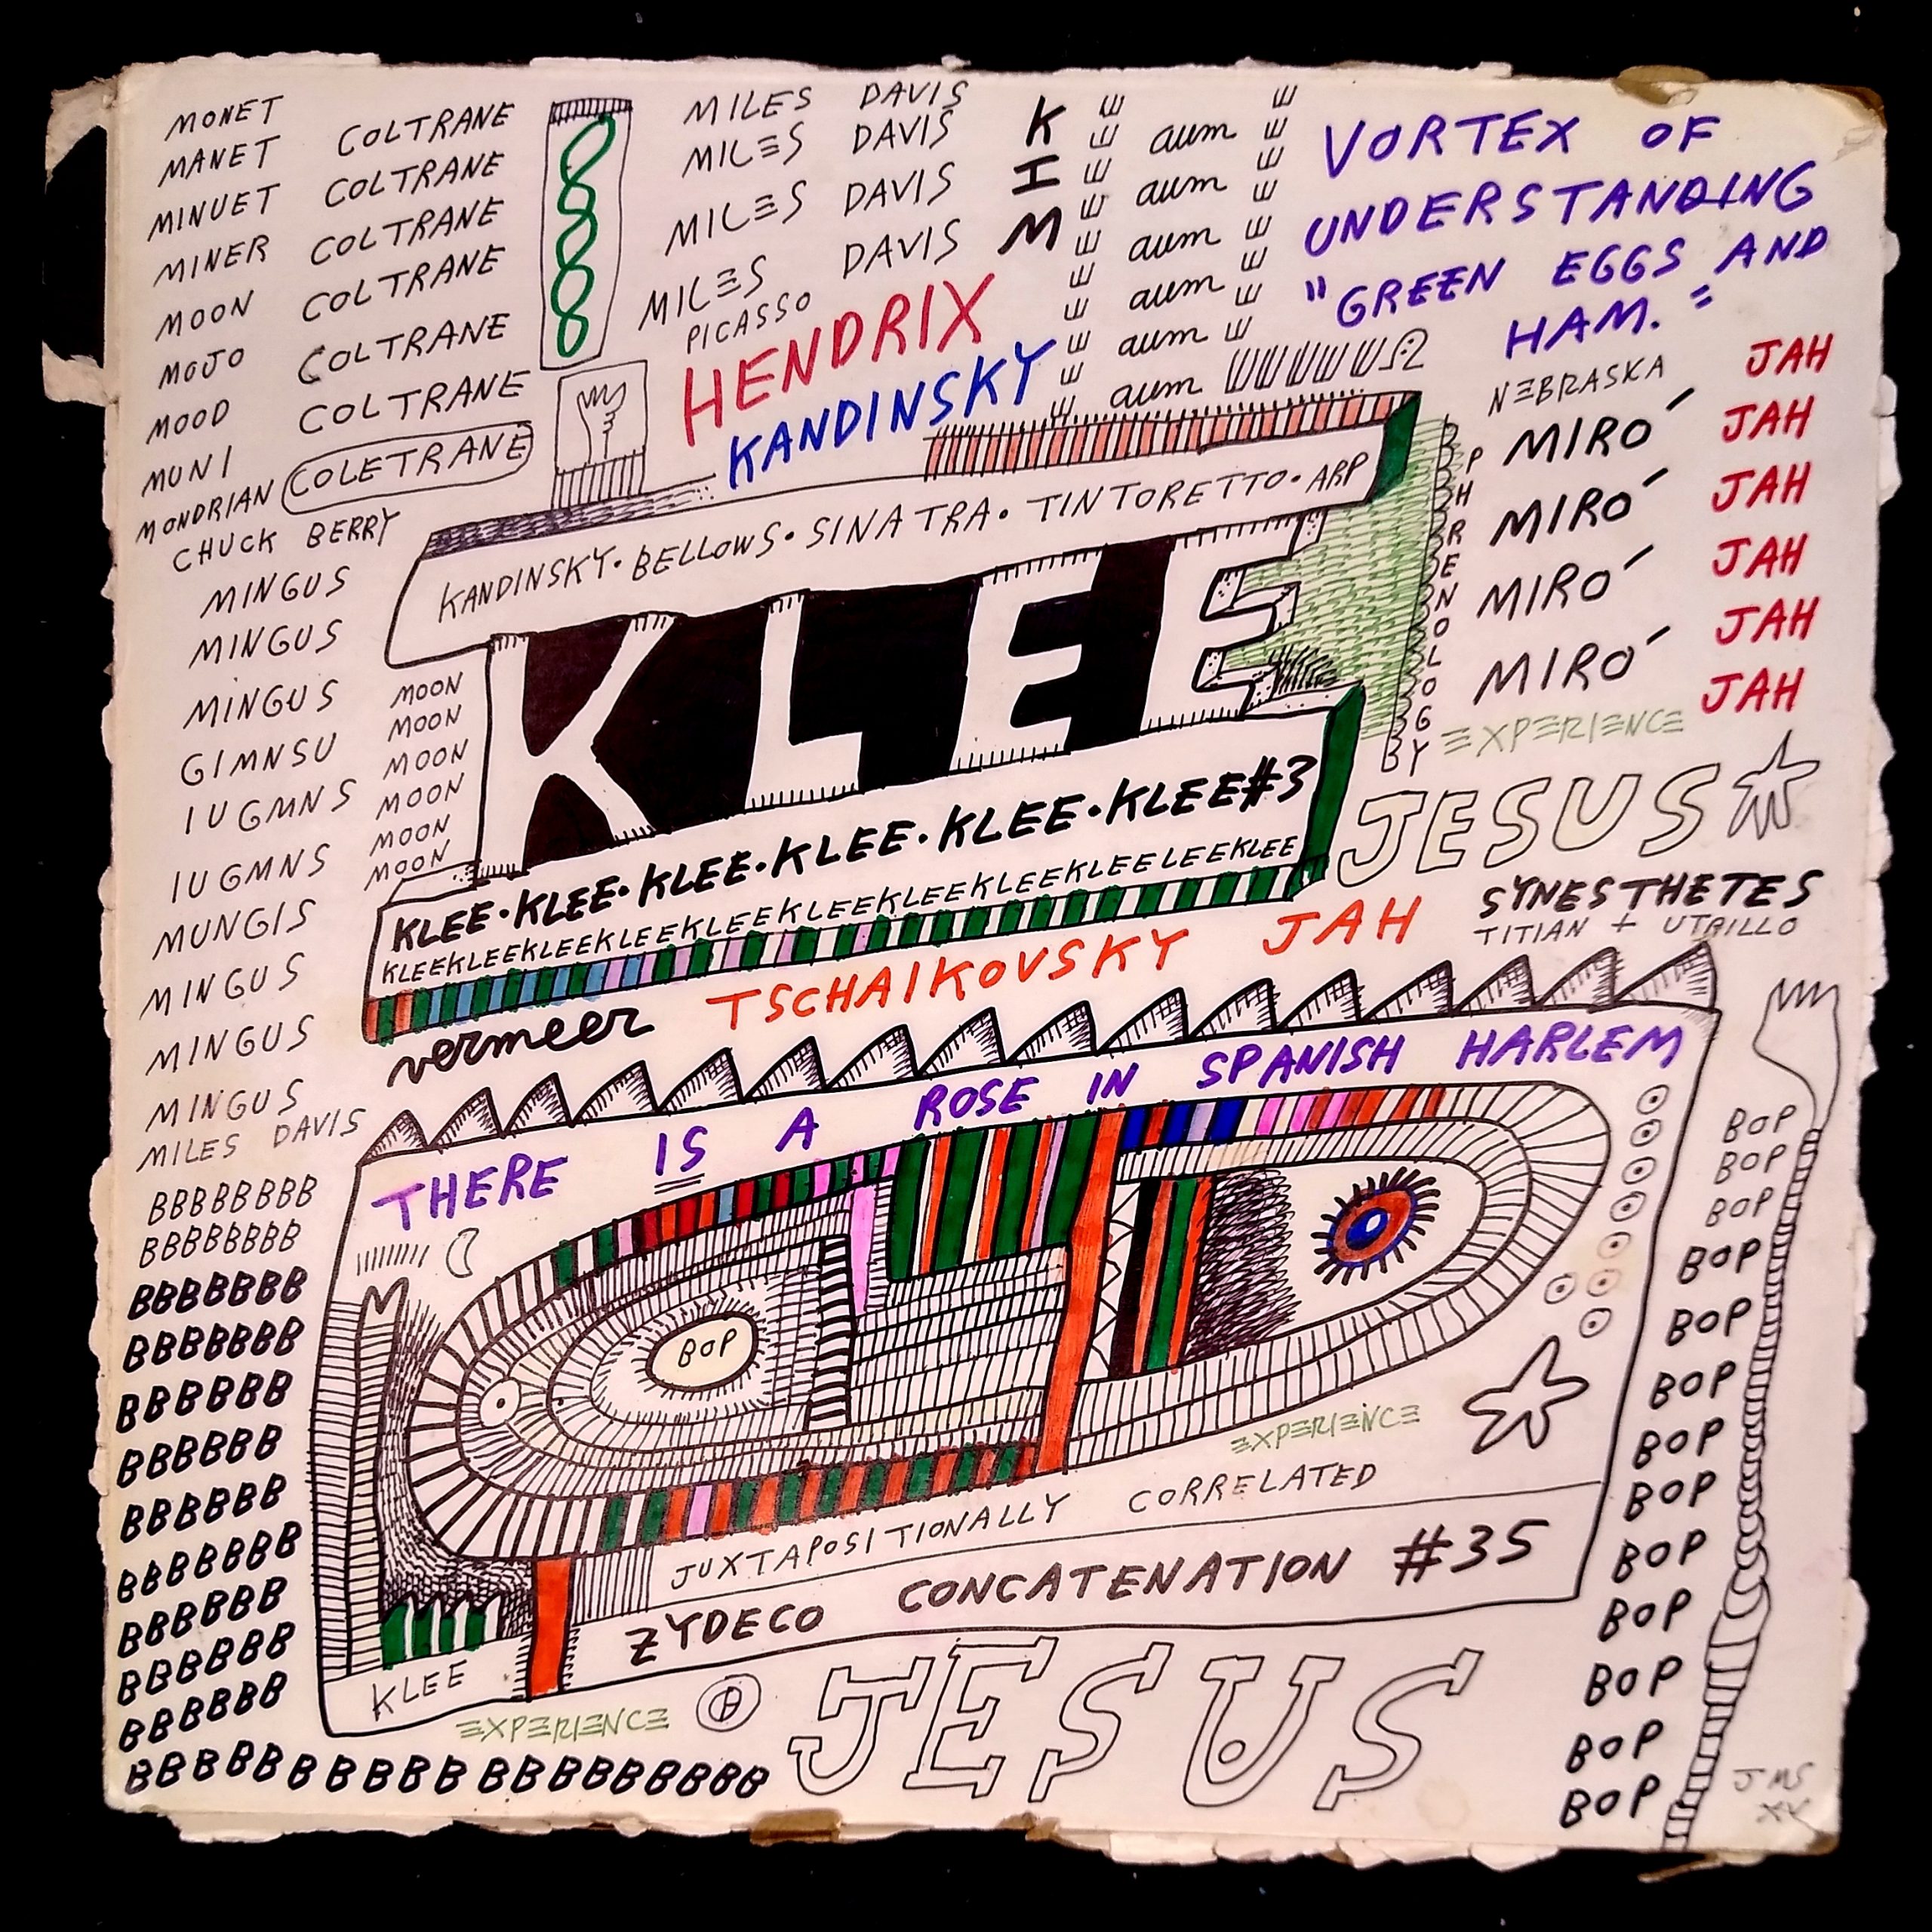 MONET
MANET
MINUET
MINER
MOON
MOJO
MOOD
MUNI
MONDRIAN
COLTRANE
COLTRANE
COLTRANE
COLTRANE
COLTRANE
COLTRANE
COLETRANE
CHUCK BERRY
MINGUS
MINGUS
MINGUS
GIMNSU
IUGMNS
IUGMNS
MUNGIS
MINGUS
MINGUS
MINGUS
MILES DAVIS
BBBBBBBB
BBBBBBBB
BBBBBBB
BBBBBBB
BBBBBB
BBBBBB
BBBBBB
BBBBBBB
BBBBBB
BBBBBB
BBBBBB
MILES DAVIS
MILES DAVIS
MILES DAVIS
MILES DAVIS
PICASSO
HENDRIX
KANDINSKY
KIM
aum
aum
aum
aum
aum
aum
VORTEX OF
UNDERSTANDING
"GREEN EGGS AND
HAM."
NEBRASKA
JAH
JAH
JAH
JAH
JAH
JAH
MIRO´
MIRO´
MIRO´
MIRO´
EXPERIENCE
PHRENOLOGY
KANDINSKY•BELLOWS•SINATRA•TINTORETTO•ARP
KLEE
MOON
MOON
MOON
MOON
MOON
MOON
KLEE•KLEE•KLEE•KLEE•KLEE•KLEE#3
KLEEKLEEKLEEKLEEKLEEKLEEKLEEKLEEKLEELEEKLEE
JESUS
SYNESTHETES
TITIAN + UTRILLO
vermeer
TSCHAIKOVSKY JAH
THERE IS A ROSE IN SPANISH HARLEM
BOP
EXPERIENCE
JUXTAPOSITIONALLY CORRELATED
ZYDECO CONCATENATION #35
KLEE
EXPERIENCE
JESUS
BOP
BOP
BOP
BOP
BOP
BOP
BOP
BOP
BOP
BOP
BOP
BOP
BOP
JMS
XX